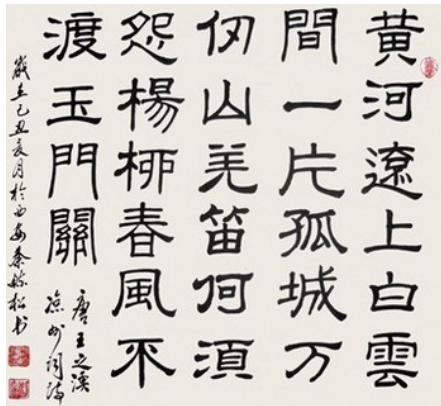 黄河遠上白雲
間一片孤城万
仞山羌笛何須
怨楊柳春風不
渡玉門關
唐王之渙
凉州詞詩
歲在己丑夏月於西安秦毓松书